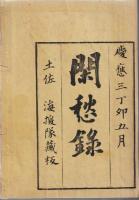 慶應三丁卯五月
閑愁録
土佐 海援隊藏板